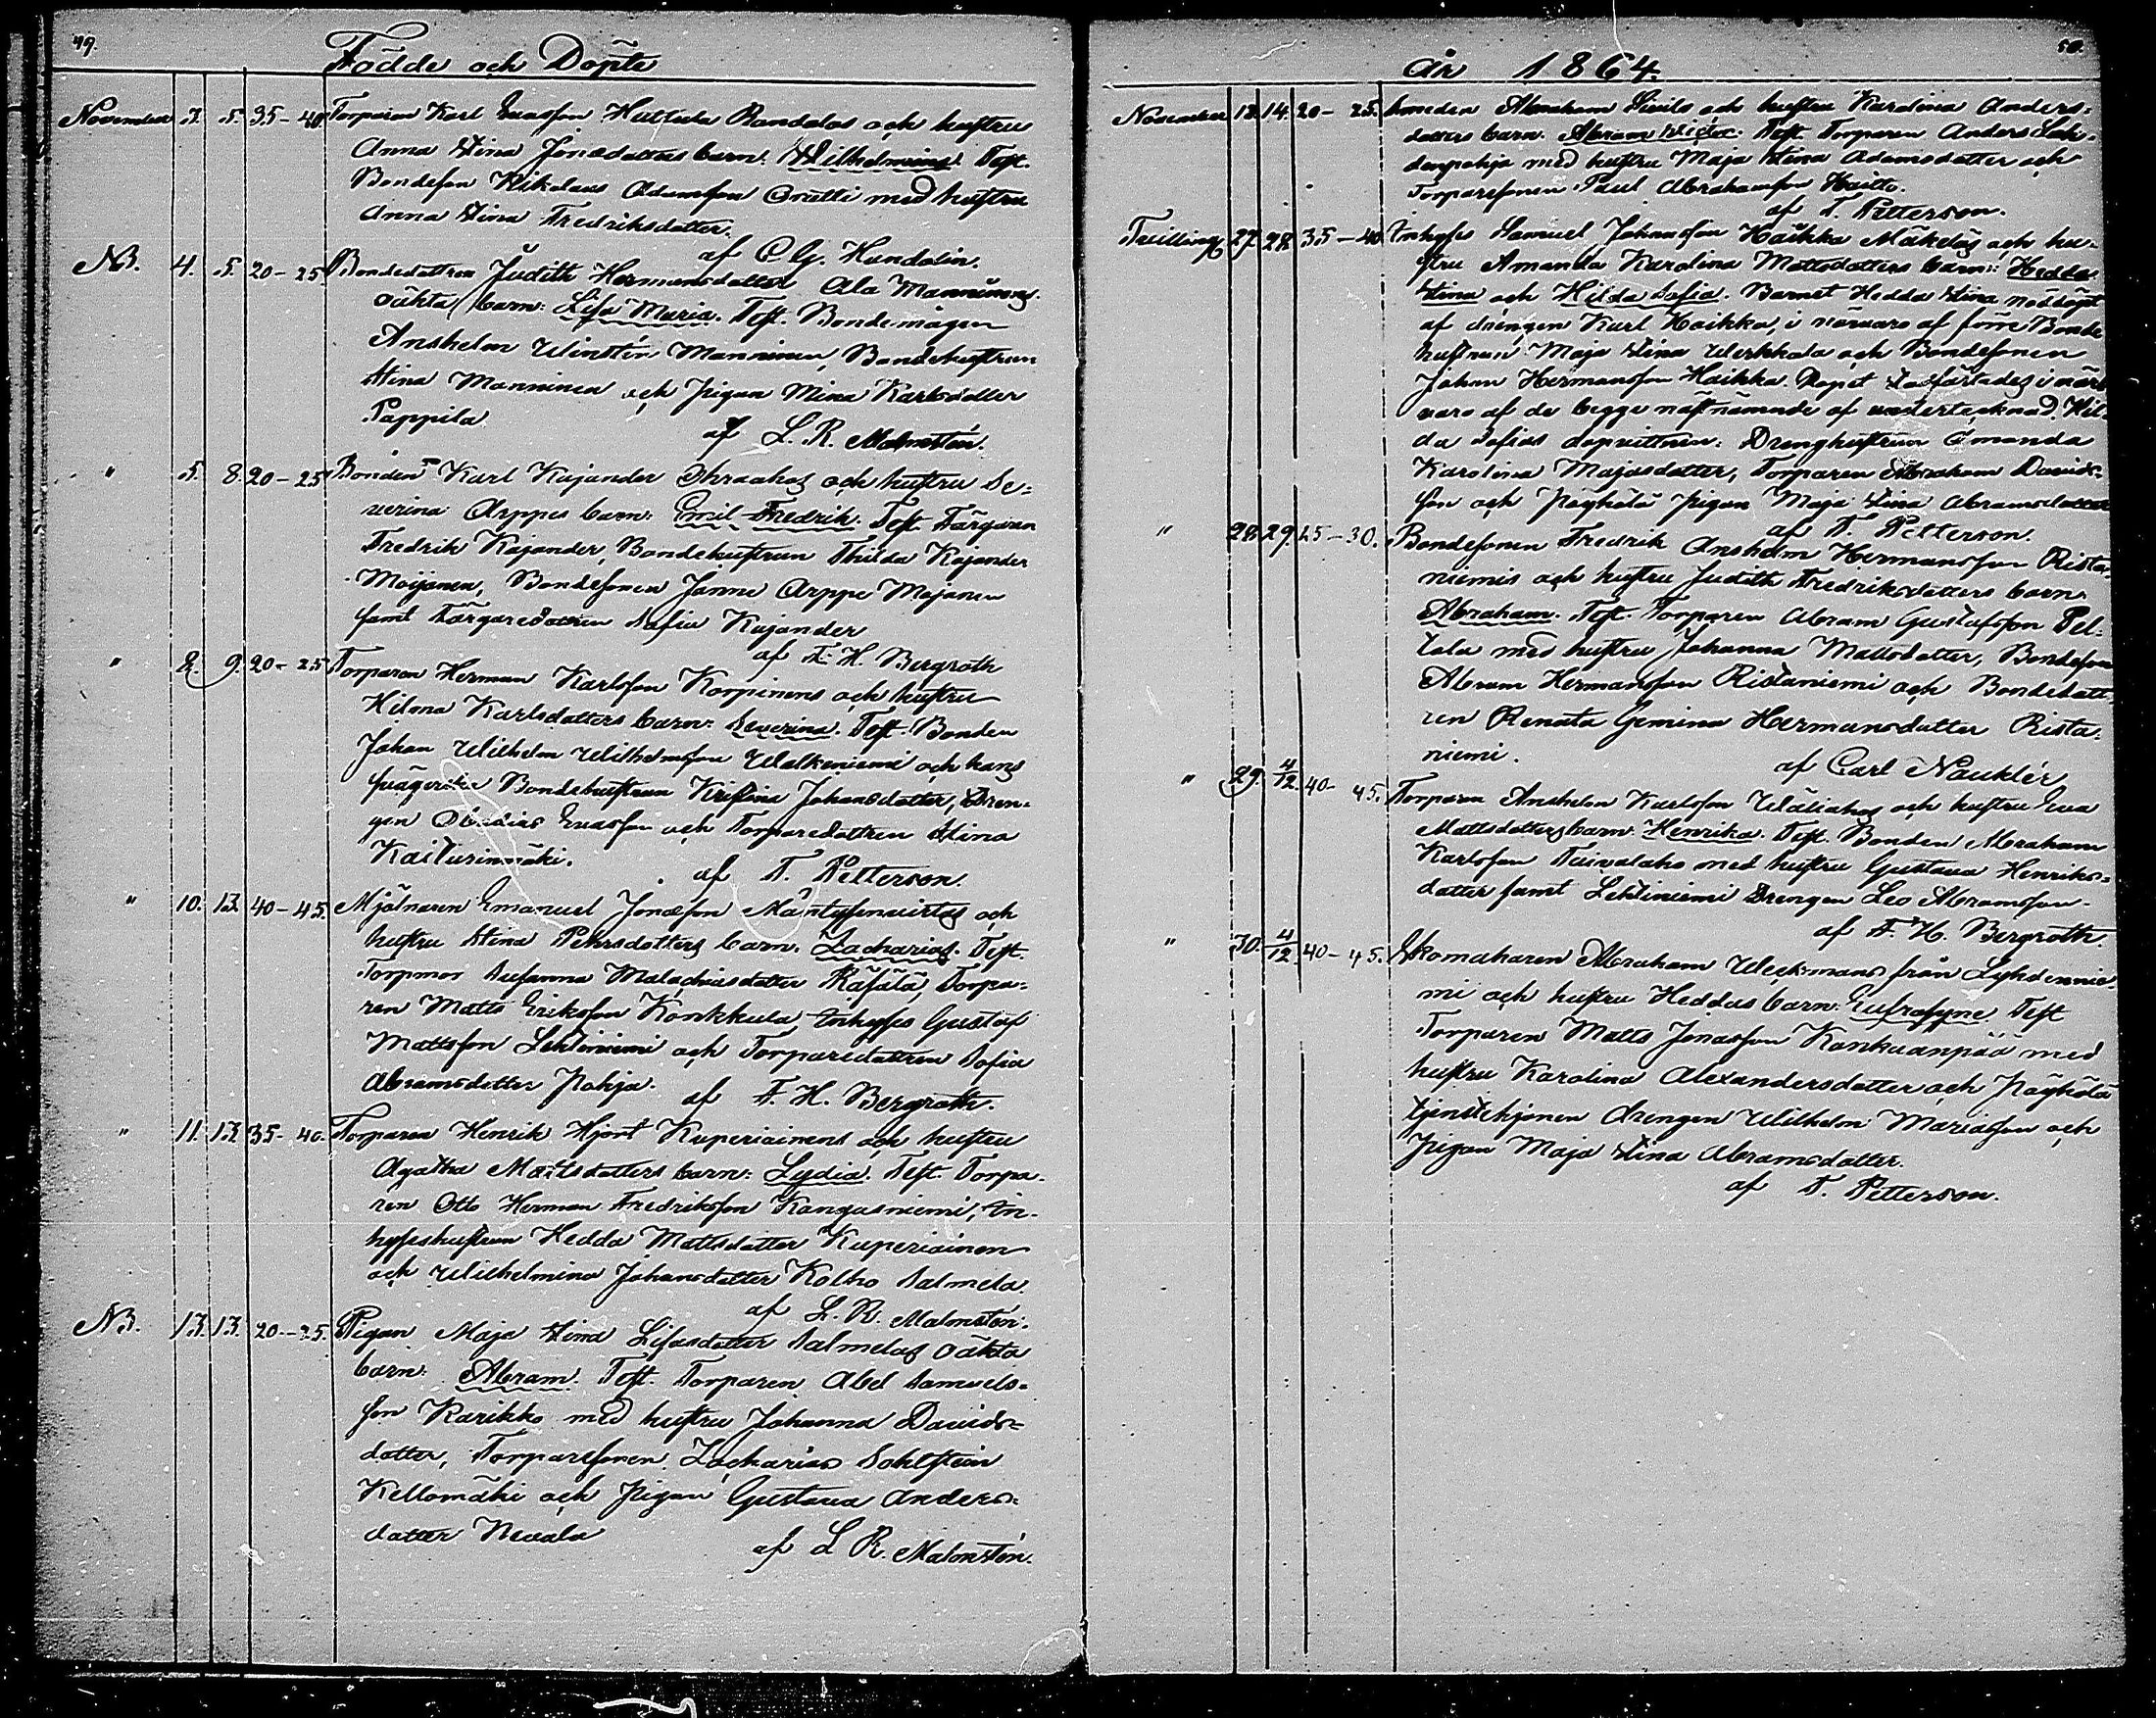 49.
Födde och Döpte
November 3. 5. 35-40 Torparen Karl Evasson Huttula Randalas och hustru
Anna Stina Jonædotters barn. Wilhelmina. Test.
Bondeson Nikolaus Adamsson Gratti med hustru
Anna Stina Fredriksdotter.
af C. G. Hundolin.
NB. 4. 5. 20-25 Bondedottren Judith Hermansdotter Ala Manninens
oäkta barn: Lisa Maria. Test. Bondemågen
Anshelm Winstén Manninen, Bondehustrun
Stina Manninen och pigan Mina Karlsdotter
Pappila
af L. R. Malmstén.
" 5. 8. 20-25 Bonden Karl Kajander Ohraahos och hustru Se=
verina Arppes barn: Emil Fredrik. Test. Färgaren
Fredrik Kajander, Bondehustrun Thilda Kajander
Moijanen, Bondesonen Janne Arppe Mojanen
samt Färgaredottren Sofia Kajander
af F. H. Bergroth
" 8. 9. 20-25 Torparen Herman Karlsson Korpinens och hustru
Hilma Karlsdotters barn: Severina. Test. Bonden
Johan Wilhelm Wilhelmsson Walkeniemi och hans
svägerska Bondehustrun Kristina Johansdotter, Dren-
gen Obadias Evasson och Torparedottren Stina
Kaiturinmäki.
af T. Petterson.
" 10. 13. 40-45. Mjölnaren Emanuel Jonæson Mäntysenvirtas och
hustru Stina Pehrsdotters barn. Zacharias. Test.
Torpmor Susanna Malachiasdotter Räfälä, Torpa=
ren Matts Eriksson Konkkula Inhyses Gustaf
Mattsson Lehtiniemi och Torparedottren Sofia
Abramsdotter Pohja.
af F. H. Bergroth.
" 11. 13. 35-40. Torparen Henrik Hjort Kuperiainens och hustru
Agatha Mattsdotters barn: Lydia. Test. Torpa-
ren Otto Herman Fredriksson Kangasniemi, In-
hyseshustrun Hedda Mattsdotter Kuperiainen
och Wilhelmina Johansdotter Kolho Salmela.
af L. R. Malmstén.
NB. 13. 13. 20-25. Pigan Maja Stina Lisasdotter Salmelas oäkta
barn: Abram. Test. Torparen Abel Samuels=
son Karikko med hustru Johanna David=
dotter, Torparesonen Zacharias Sohlstein
Kellomäki och pigan Gustava Anders=
dotter Nevala
af L R. Malmstén.
50.
år 1864.
November 13. 14. 20-25. Smeden Abraham och hustru Karolina Anders=
dotters barn. Abram Victor. Test. Torparen Anders
med hustru Maja Stina Adamsdotter och
Torparesonen Paul Abrahamsson Haitto.
af T. Petterson.
Tvilling 27. 28. 35-40 Inhyses Samuel Johansson Haikka Mäkeläs och hu=
stru Amanda Karolina Mattsdotters barn: Hedda
Stina och Hilda Sofia. Barnet Hedda Stina nöddöpt
af drengen Karl Haikka, i närvaro af förre Bonde
hustrun Maja Stina Werkkala och Bondesonen
Johan Hermansson Haikka. Dopet stadfästades i när
varo af de begge näst nämnde af undertecknad. Hil
da Sofias dopvittnen: Drenghustrun Amanda
Karolina Majasdotter, Torparen Abraham Davids=
son och Pöyhölä pigan Maja Stina Abramsdotter
af T. Petterson.
" 28. 29. 25-30. Bondesonen Fredrik Anshelm Hermansson Rista=
niemis och hustru Judith Fredriksdotters barn
Abraham. Test. Torparen Abram Gustafsson Pel=
tola med hustru Johanna Mattsdotter, Bondeson
Abram Hermansson Ristaniemi och Bondedott
ren Renata Gemina Hermansdotter Rista=
niemi.
af Carl Nauklér
" 29. 4/12. 40-45. Torparen Anshelm Karlsson Wäliahos och hustru Eva
Mattsdotters barn: Henrika. Test. Bonden Abraham
Karlsson Taivalaho med hustru Gustava Henriks=
dotter samt Lehtiniemi Drengen Leo Abramsson.
af F. H. Bergroth.
" 30. 4/12. 40-45. Skomakaren Abraham Weckmans från Lyhdennie
mi och hustru Heddas barn: Eufrosyne. Test
Torparen Matts Jonasson Kankaanpää med
hustru Karolina Alexandersdotter och Pöyhölä
tjenstehjonen drengen Wilhelm Mariasson och
pigan Maja Stina Abramsdotter.
af T. Petterson.